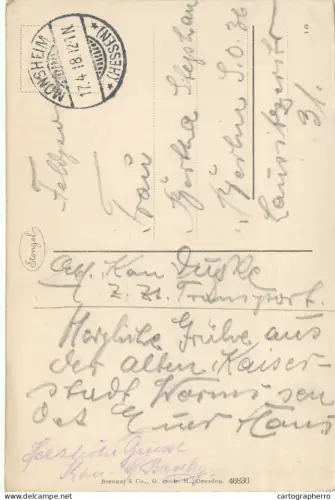 MONSHEIM
17.4.18.12-1N.
*(HESSEN)*
Feldpost
Frau
Bertha Stephan
Berlin S.O. 36
Lausitzerstr
31.
Stengel
Abs. Kan
z. Zt. Transport.
Herzliche Grüße aus
der alten Kaiser-
stadt Worms sen
det Euer Hans
Herzliche Grüsse
Kan.
Stengel & Co., G. m. b. H., Dresden. 46836
www.delcampe.net
karenza_collection